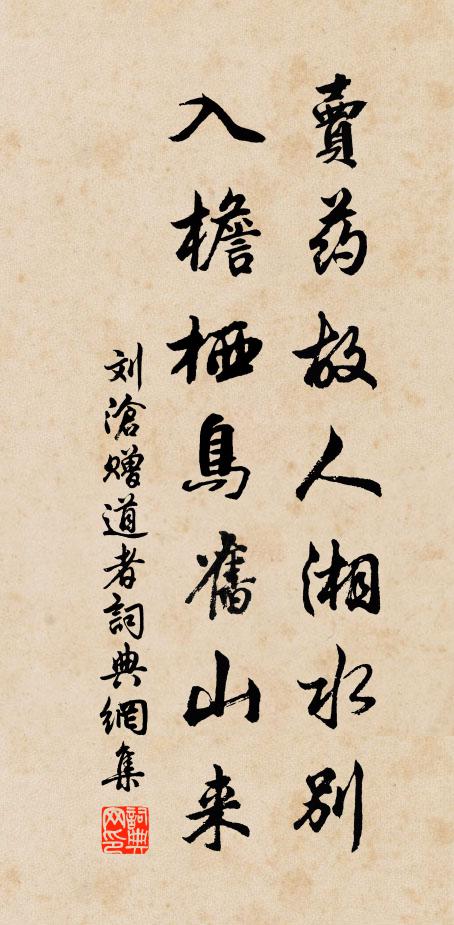 賣药故人湘水别
入檐栖鳥舊山来
刘滄赠道者詞典網集
詞典网印